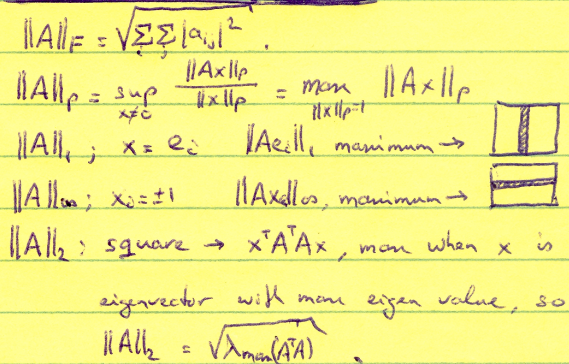 ||A||F = √ΣΣ|aij|² .
||A||p = sup x≠0 ||Ax||p / ||x||p = max ||x||p=1 ||Ax||p
||A||₁ ; x = ei ||Aei||₁ maximum →
||A||∞ ; xi = ±1 ||Ax||∞, maximum →
||A||₂ : square → xᵀAᵀAx, max when x is
eigenvector with max eigen value, so
||A||₂ = √λmax(AᵀA) .